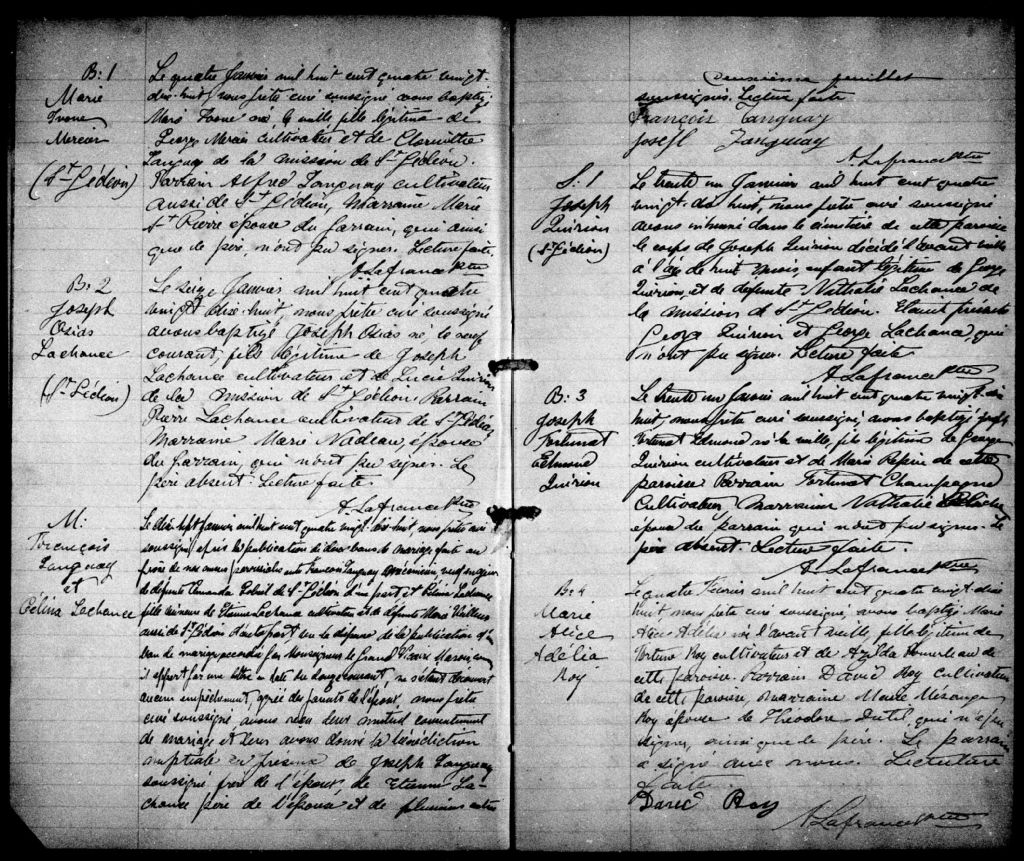 B: 1
Marie
Ivonne
Mercier
(St Gédéon)
Le quatre Janvier mil huit cent quatre vingt-
dix-huit, nous prêtre curé soussigné avons baptizé
Marie Ivonne née la veille fille légitime de
George Mercier cultivateur et de
Tanguay de la mission de St Gédéon.
Parrain Alfred Tanguay cultivateur
aussi de St Gédéon, Marraine Marie
St Pierre épouse du parrain, qui ainsi
que le père, n'ont pu signer. Lecture faite.
A. Lafrance Ptre
B: 2
Joseph
Osias
Lachance
(St Gédéon)
Le seize Janvier mil huit cent quatre
vingt dix-huit, nous prêtre curé soussigné
avons baptizé Joseph Osias né le neuf
courant, fils légitime de Joseph
Lachance cultivateur et de Lucie Quirion
de la mission de St Gédéon. Parrain
Pierre Lachance cultivateur de St Gédéon,
Marraine Marie Nadeau, épouse
du parrain, qui n'ont pu signer. Le
père absent. Lecture faite.
A. Lafrance Ptre
M:
François
Tanguay
et
Célina Lachance
Le dix-sept Janvier mil huit cent quatre vingt-dix-huit, nous prêtre curé
soussigné, après la publication de deux bans de mariage faite au
prône de nos messes paroissiales entre François Tanguay
de défunte de St Gédéon d'une part et Célina Lachance
fille mineure de Etienne Lachance cultivateur et de défunte Marie
aussi de St Gédéon d'autre part vu la dispense de la publication d'un
ban de mariage accordé par Monseigneur le Grand Vicaire Marois, comme
il appert par une lettre en date du douze courant, ne s'étant découvert
aucun empêchement, agréé des parents de l'épouse, nous prêtre
curé soussigné avons reçu leur mutuel consentement
de mariage et leur avons donné la bénédiction
nuptiale en présence de Joseph Tanguay
soussigné frère de l'époux, de Etienne La-
chance père de l'épouse et de plusieurs autres
Deuxième feuillet
soussignés. Lecture faite
François Tanguay
Joseph Tanguay
A. Lafrance Ptre
S: 1
Joseph
Quirion
(St Gédéon)
Le trente un Janvier mil huit cent quatre
vingt-dix huit, nous prêtre curé soussigné
avons inhumé dans le cimetière de cette paroisse
le corps de Joseph Quirion décédé l'avant veille
à l'âge de huit mois, enfant légitime de George
Quirion, et de défunte Nathalie Lachance de
la mission de St Gédéon. Etaient présents
George Quirion et George Lachance, qui
n'ont pu signer. Lecture faite
A. Lafrance Ptre
B: 3
Joseph
Fortunat
Edmond
Quirion
Le trente un Janvier mil huit cent quatre vingt-dix
huit, nous prêtre curé soussigné, avons baptizé Joseph
Fortunat Edmond né la veille, fils légitime de George
Quirion cultivateur et de Marie Pepin de cette
paroisse Parrain Fortunat Champagne
Cultivateur, Marraine Nathalie
épouse du parrain qui n'ont pu signer. Le
père absent. Lecture faite.
A. Lafrance Ptre
B: 4
Marie
Alice
Adélia
Roy
Le quatre Février mil huit cent quatre vingt-dix
huit, nous prêtre curé soussigné, avons baptizé Marie
Alice Adélia née l'avant veille, fille légitime de
Roy cultivateur et de Pomerleau de
cette paroisse. Parrain David Roy cultivateur
de cette paroisse, marraine Marie
Roy épouse de Théodore Dutil, qui n'a pu
signer, ainsi que le père. Le parrain
a signé avec nous. Lecture
faite
David Roy
A. Lafrance Ptre